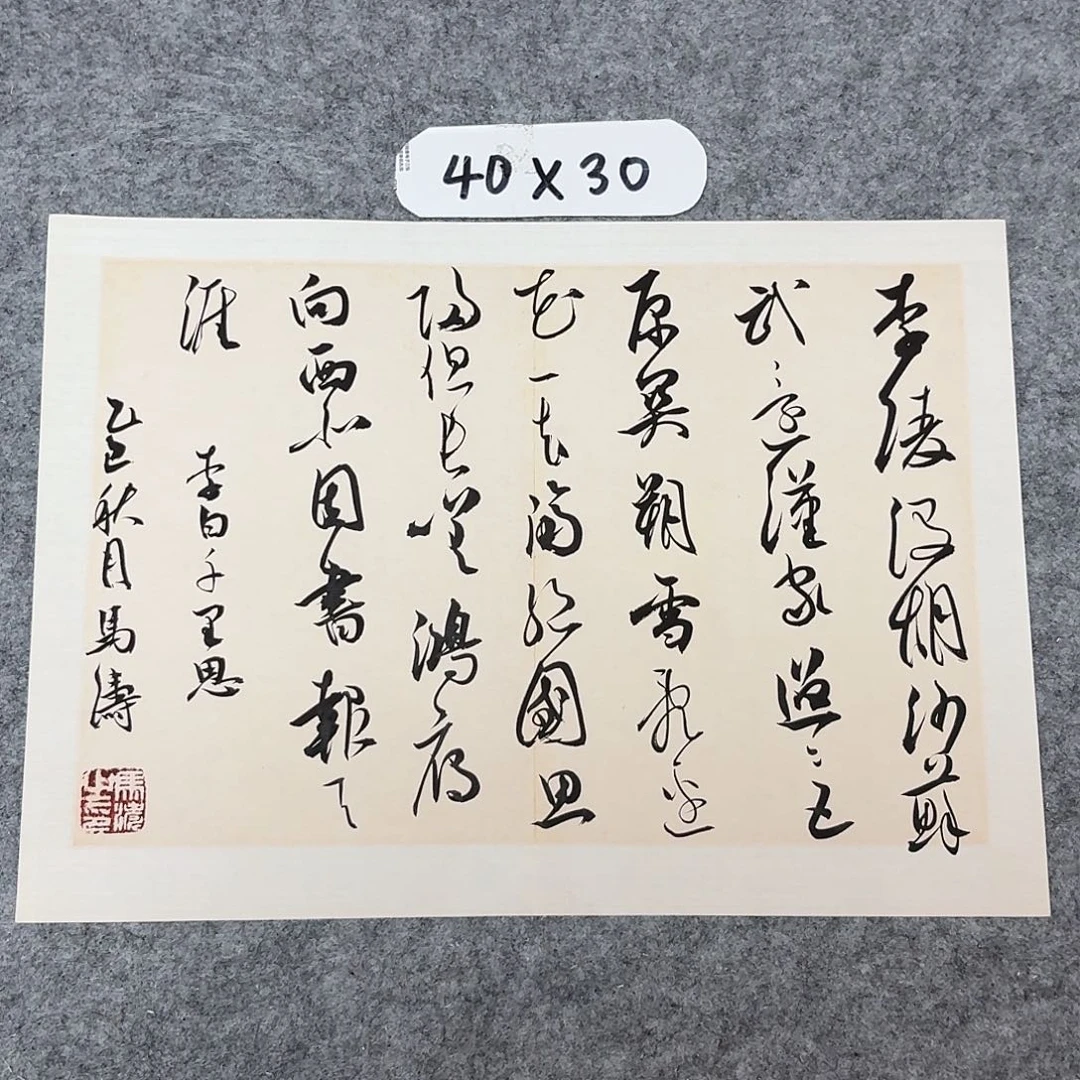 40 X 30
李陵没胡沙蘇
武還漢家迢〻五
原關朔雪亂邊
花一去隔絕國思
歸但長嗟鴻雁
向西北因書報天
涯
李白千里思
乙巳秋月馬濤